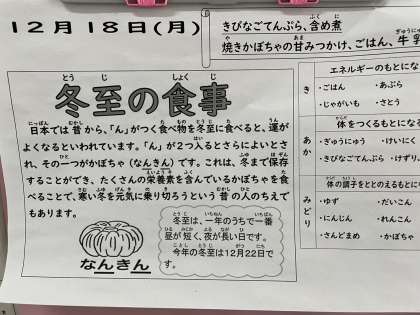 12月18日(月)
きびなごてんぷら、含め煮
焼きかぼちゃの甘みつかけ、ごはん、牛乳
冬至の食事
日本では昔から、「ん」がつく食べ物を冬至に食べると、運が
よくなるといわれています。「ん」が2つ入るとさらによいとさ
れ、その一つがかぼちゃ(なんきん)です。これは、冬まで保存
することができ、たくさんの栄養素を含んでいるかぼちゃを食
べることで、寒い冬を元気に乗り切ろうという昔の人のちえで
もあります。
なんきん
冬至は、一年のうちで一番
昼が短く、夜が長い日です。
今年の冬至は12月22日で
す。
エネルギーのもとにな
き
・ごはん ・あぶら
・じゃがいも ・さとう
体をつくるもとになる
あか
・ぎゅうにゅう ・けいにく
・きびなごてんぷら ・けずり
体の調子をととのえるもとに
みどり
・ゆず ・だいこん
・にんじん ・れんこん
・さんどまめ ・かぼちゃ